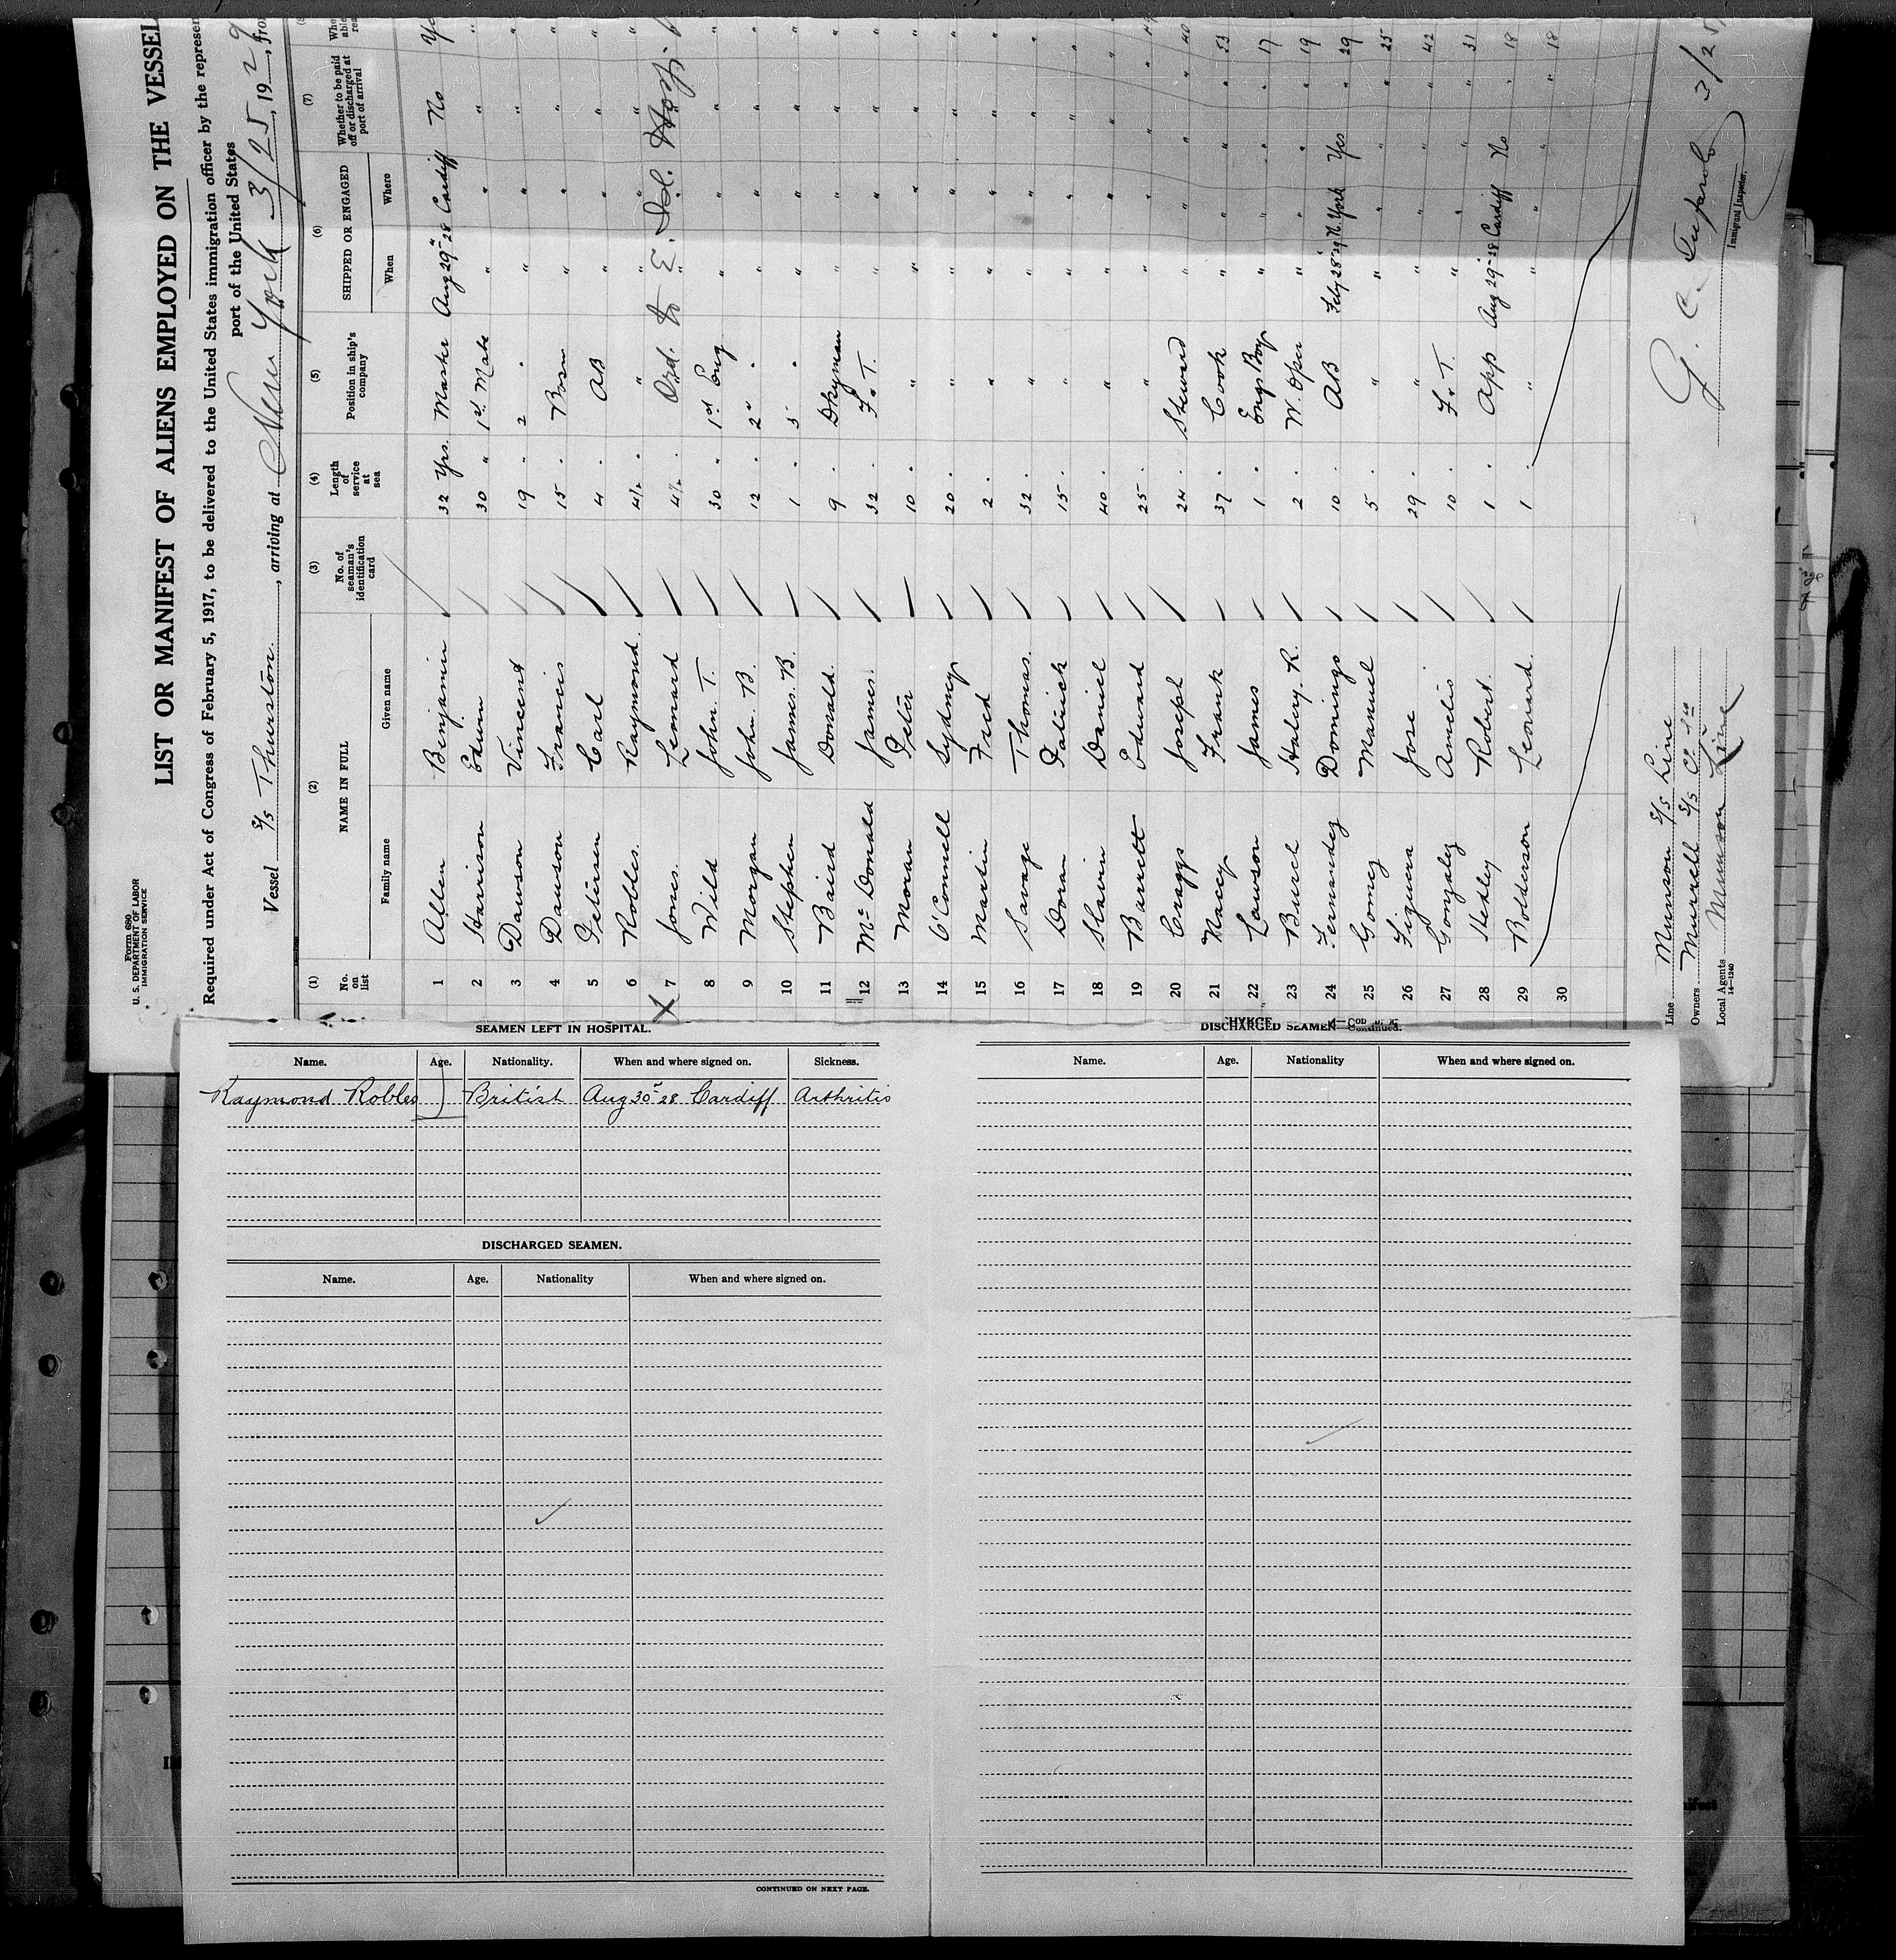 Form 680
U. S. DEPARTMENT OF LABOR
IMMIGRATION SERVICE
LIST OR MANIFEST OF ALIENS EMPLOYED ON THE VESSEL
Required under Act of Congress of February 5, 1917, to be delivered to the United States immigration officer by the represen
port of the United States
Vessel S/S Thurston, arriving at New York 3/25, 1929, from
(1) (2) (3) (4) (5) (6) (7)
No. on list NAME IN FULL No. of seaman's identification card Length of service at sea Position in ship's company SHIPPED OR ENGAGED Whether to be paid off or discharged at port of arrival
Family name Given name When Where
1 Allen Benjamin 32 Yrs. Master Aug 29" 28 Cardiff No
2 Harrison Edwin 30 " 1st Mate " " "
3 Dawson Vincent 19 " 2 " " " "
4 Dawson Francis 15 " Bosn " " "
5 Petersen Carl 4 " AB " " "
6 Robles Raymond 4½ " " " " "
7 Jones Leonard 4½ " Ord. to E. Isl. Hosp.
8 Wild John. T. 30 " 1st Eng " " "
9 Morgan John. B. 12 " 2" " " " "
10 Stephen James. B. 1 " 3 " " " "
11 Baird Donald 9 " Dkyman " " "
12 Mc Donald James 32 " F. T. " " "
13 Moran Peter 10 " " " " "
14 O'Connell Sydney 20 " " " " "
15 Martin Fred 2 " " " " "
16 Savage Thomas. 32 " " " " "
17 Doran Patrick 15 " " " " "
18 Slavin Daniel 40 " " " " "
19 Barrett Edward 25 " " " " "
20 Craggs Joseph 24 " Steward " " " 40
21 Macey Frank 37 " Cook " " " 53
22 Lawson James 1 " Engs Boy " " " 17
23 Burd 2 " W. Oper " " " 19
24 Fernandez Domingo 10 " AB Feby 28" 29 N. York Yes " 29
25 Gomez Manuel 5 " " " " " 25
26 Figuera Jose 29 " " " " " 42
27 Gonzalez 10 " F. T. " " " 31
28 Hedley Robert. 1 " App Aug 29" 28 Cardiff No " 18
29 Bolderson Leonard. 1 " " " " " 18
30
Line Munson S/S Line
Owners Murrell S/S Co
Local Agents Munson Line
14—1240
G. C. 3/25
Immigrant Inspector.
SEAMEN LEFT IN HOSPITAL.
Name. Age. Nationality. When and where signed on. Sickness.
Raymond Robles British Aug 30" 28 Cardiff Arthritis
DISCHARGED SEAMEN.
Name. Age. Nationality When and where signed on.
CONTINUED ON NEXT PAGE.
DISCHARGED SEAMEN—Continued.
Name. Age. Nationality When and where signed on.